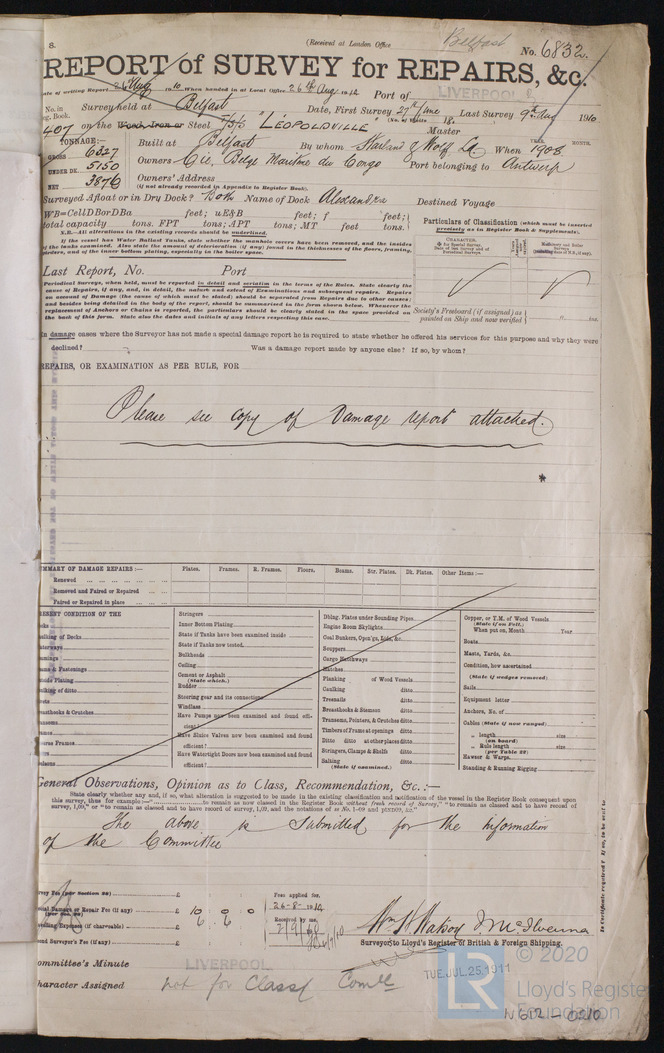 8.
(Received at London Office
Belfast
No. 6832.
REPORT of SURVEY for REPAIRS, &c.
ate of writing Report 26 Aug 10 When handed in at Local Office 26th Aug 1910 Port of LIVERPOOL
No. in
eg. Book.
Survey held at Belfast Date, First Survey 27th June Last Survey 9th Aug 1910
(No. of Visits 18)
407 on the Wood, Iron or Steel S/S/S "LÉOPOLDVILLE" Master
TONNAGE:—
GROSS 6327
UNDER DK. 5150
NET 3876
Built at Belfast By whom Harland & Wolff Ld. When 1908
YEAR. MONTH.
Owners Cie. Belge Maritime du Congo Port belonging to Antwerp
Owners' Address
(if not already recorded in Appendix to Register Book).
Surveyed Afloat or in Dry Dock? Both Name of Dock Alexandra Destined Voyage
WB=CellDBorDBa feet; uE&B feet; f feet;
total capacity tons. FPT tons; APT tons; MT feet tons.
N.B.—All alterations in the existing records should be underlined.
If the vessel has Water Ballast Tanks, state whether the manhole covers have been removed, and the insides
of the tanks examined. Also state the amount of deterioration (if any) found in the thicknesses of the floors, framing,
girders, and of the inner bottom plating, especially in the boiler space.
Particulars of Classification (which must be inserted
precisely as in Register Book & Supplements.
CHARACTER.
Last Report, No. Port
Periodical Surveys, when held, must be reported in detail and seriatim in the terms of the Rules. State clearly the
cause of Repairs, if any, and, in detail, the nature and extent of Examinations and subsequent repairs. Repairs
on account of Damage (the cause of which must be stated) should be separated from Repairs due to other causes;
and besides being detailed in the body of the report, should be summarised in the form shewn below. Whenever the
replacement of Anchors or Chains is reported, the particulars should be clearly stated in the space provided on
the back of this form. State also the dates and initials of any letters respecting this case.
Society's Freeboard (if assigned) as
painted on Ship and now verified ft. ins.
In damage cases where the Surveyor has not made a special damage report he is required to state whether he offered his services for this purpose and why they were
declined? Was a damage report made by anyone else? If so, by whom?
REPAIRS, OR EXAMINATION AS PER RULE, FOR
Please see copy of Damage report attached.
*
SUMMARY OF DAMAGE REPAIRS:— Plates. Frames. R. Frames. Floors. Beams. Str. Plates. Dk. Plates. Other Items:—
Renewed
Removed and Faired or Repaired
Faired or Repaired in place
RESENT CONDITION OF THE
ecks
aulking of Decks
aterways
amings
eams & Fastenings
utside Plating
aulking of ditto
Breasthooks & Crutches
ransoms
rames
everse Frames
Stringers
Inner Bottom Plating
State if Tanks have been examined inside
State if Tanks now tested
Bulkheads
Ceiling
Cement or Asphalt
(State which.)
Rudder
Steering gear and its connections
Windlass
Have Pumps now been examined and found effi-
cient?
Have Sluice Valves now been examined and found
efficient?
Have Watertight Doors now been examined and found
efficient?
Dblng. Plates under Sounding Pipes
Engine Room Skylights
Coal Bunkers, Open'gs, Lids, &c.
Scuppers
Cargo Hatchways
Hatches
Planking of Wood Vessels
Caulking ditto
Treenails ditto
Breasthooks & Stemson ditto
Transoms, Pointers, & Crutches ditto
Timbers of Frame at openings ditto
Ditto ditto at other places ditto
Stringers, Clamps & Shelfs ditto
Salting ditto
(State if examined.)
Copper, or Y.M. of Wood Vessels
(State if on Felt.)
When put on, Month Year
Boats
Masts, Yards, &c.
Condition, how ascertained
(State if wedges removed)
Sails
Equipment letter
Anchors, No. of
Cables (State if now ranged)
„ length size
(on board)
„ Rule length size
(per Table 22)
Hawser & Warps
Standing & Running Rigging
General Observations, Opinion as to Class, Recommendation, &c.:—
State clearly whether any and, if so, what alteration is suggested to be made in the existing classification and notification of the vessel in the Register Book consequent upon
this survey, thus for example:—"to remain as now classed in the Register Book without fresh record of Survey," "to remain as classed and to have record of
survey, 1,09," or "to remain as classed and to have record of survey, 1,09, and the notations of ss No. 1-09 and pTND09, &c."
The above is submitted for the information
of the Committee
urvey Fee (per Section 28) £
pecial Damage or Repair Fee (if any) £ 10 0 0
(per Sec. 28)
ravelling Expenses (if chargeable) £ 6 6
econd Surveyor's Fee (if any) £
Fees applied for,
26-8-1910
Received by me,
Wm H. Watson J. McIlvenna
Surveyors to Lloyd's Register of British & Foreign Shipping.
ommittee's Minute LIVERPOOL
TUE. JUL. 25. 1911
haracter Assigned not for Classfn Comtee
Is Certificate required? If so, to be sent to
© 2020
LR
Lloyd's Register
Foundation
N612-0210